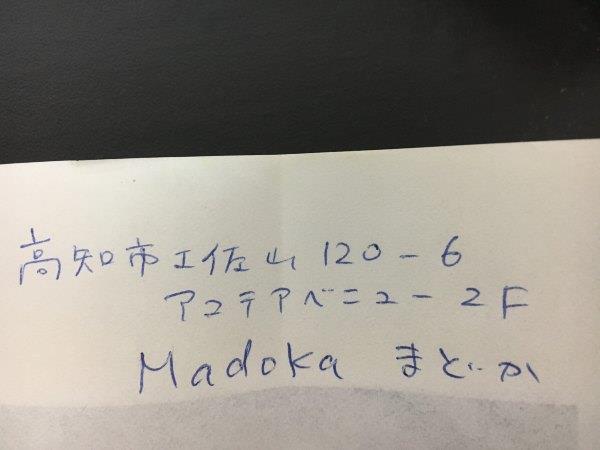 高知市土佐山 120-6
アコテアベニュー 2F
Madoka まどか